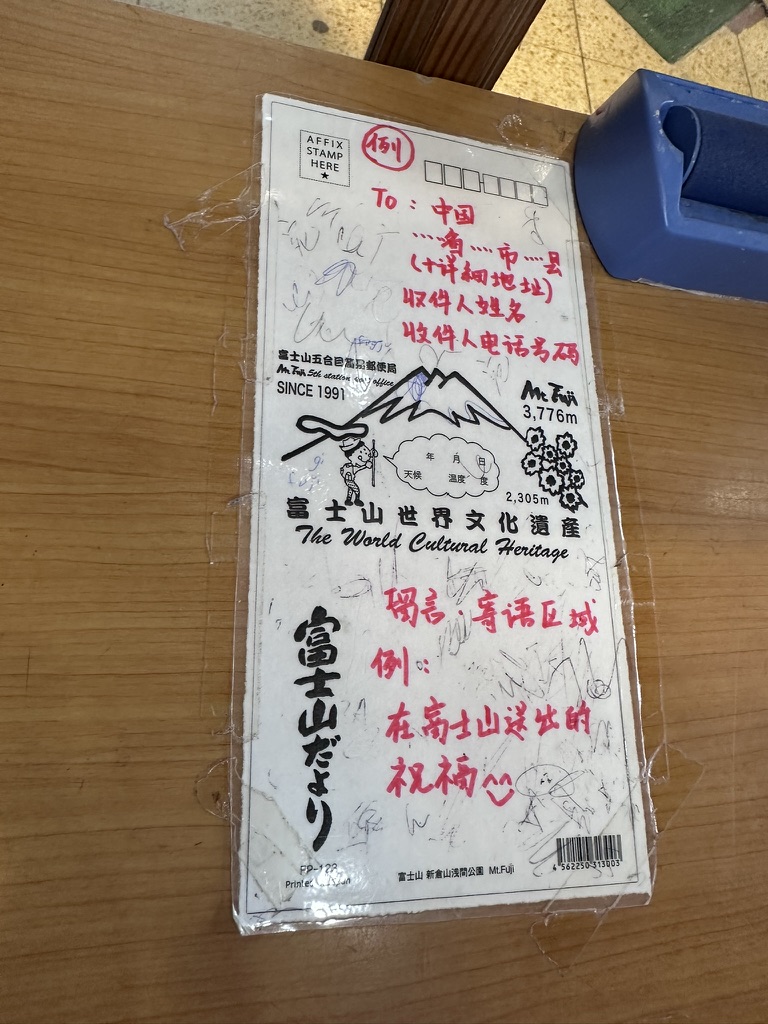 AFFIX
STAMP
HERE
★
例
To：中国
……省……市……县
(+详细地址)
收件人姓名
收件人电话号码
富士山五合目簡易郵便局
Mt. Fuji 5th station post office
SINCE 1991
Mt. Fuji
3,776m
年 月 日
天候 温度 度
2,305m
富士山世界文化遺産
The World Cultural Heritage
留言．寄语区域
例：
在富士山送出的
祝福
富士山だより
PP-128
Printed in Japan
富士山 新倉山浅間公園 Mt.Fuji
4 562250 313003